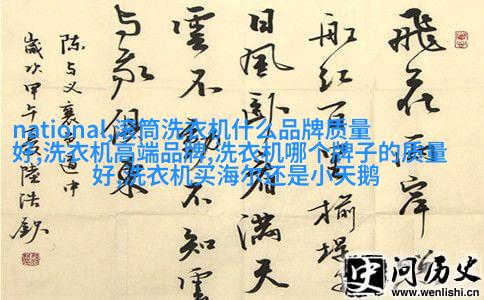 飛花兩岸
船紅百里榆堤
日風卧看滿天
雲不動不知雲
与我俱東
陳与义襄邑道中
歲次甲午夏陸浩
national 滚筒洗衣机什么品牌质量
好,洗衣机高端品牌,洗衣机哪个牌子的质量
好,洗衣机买海尔还是小天鹅
史 问历史
www.wenlishi.cn